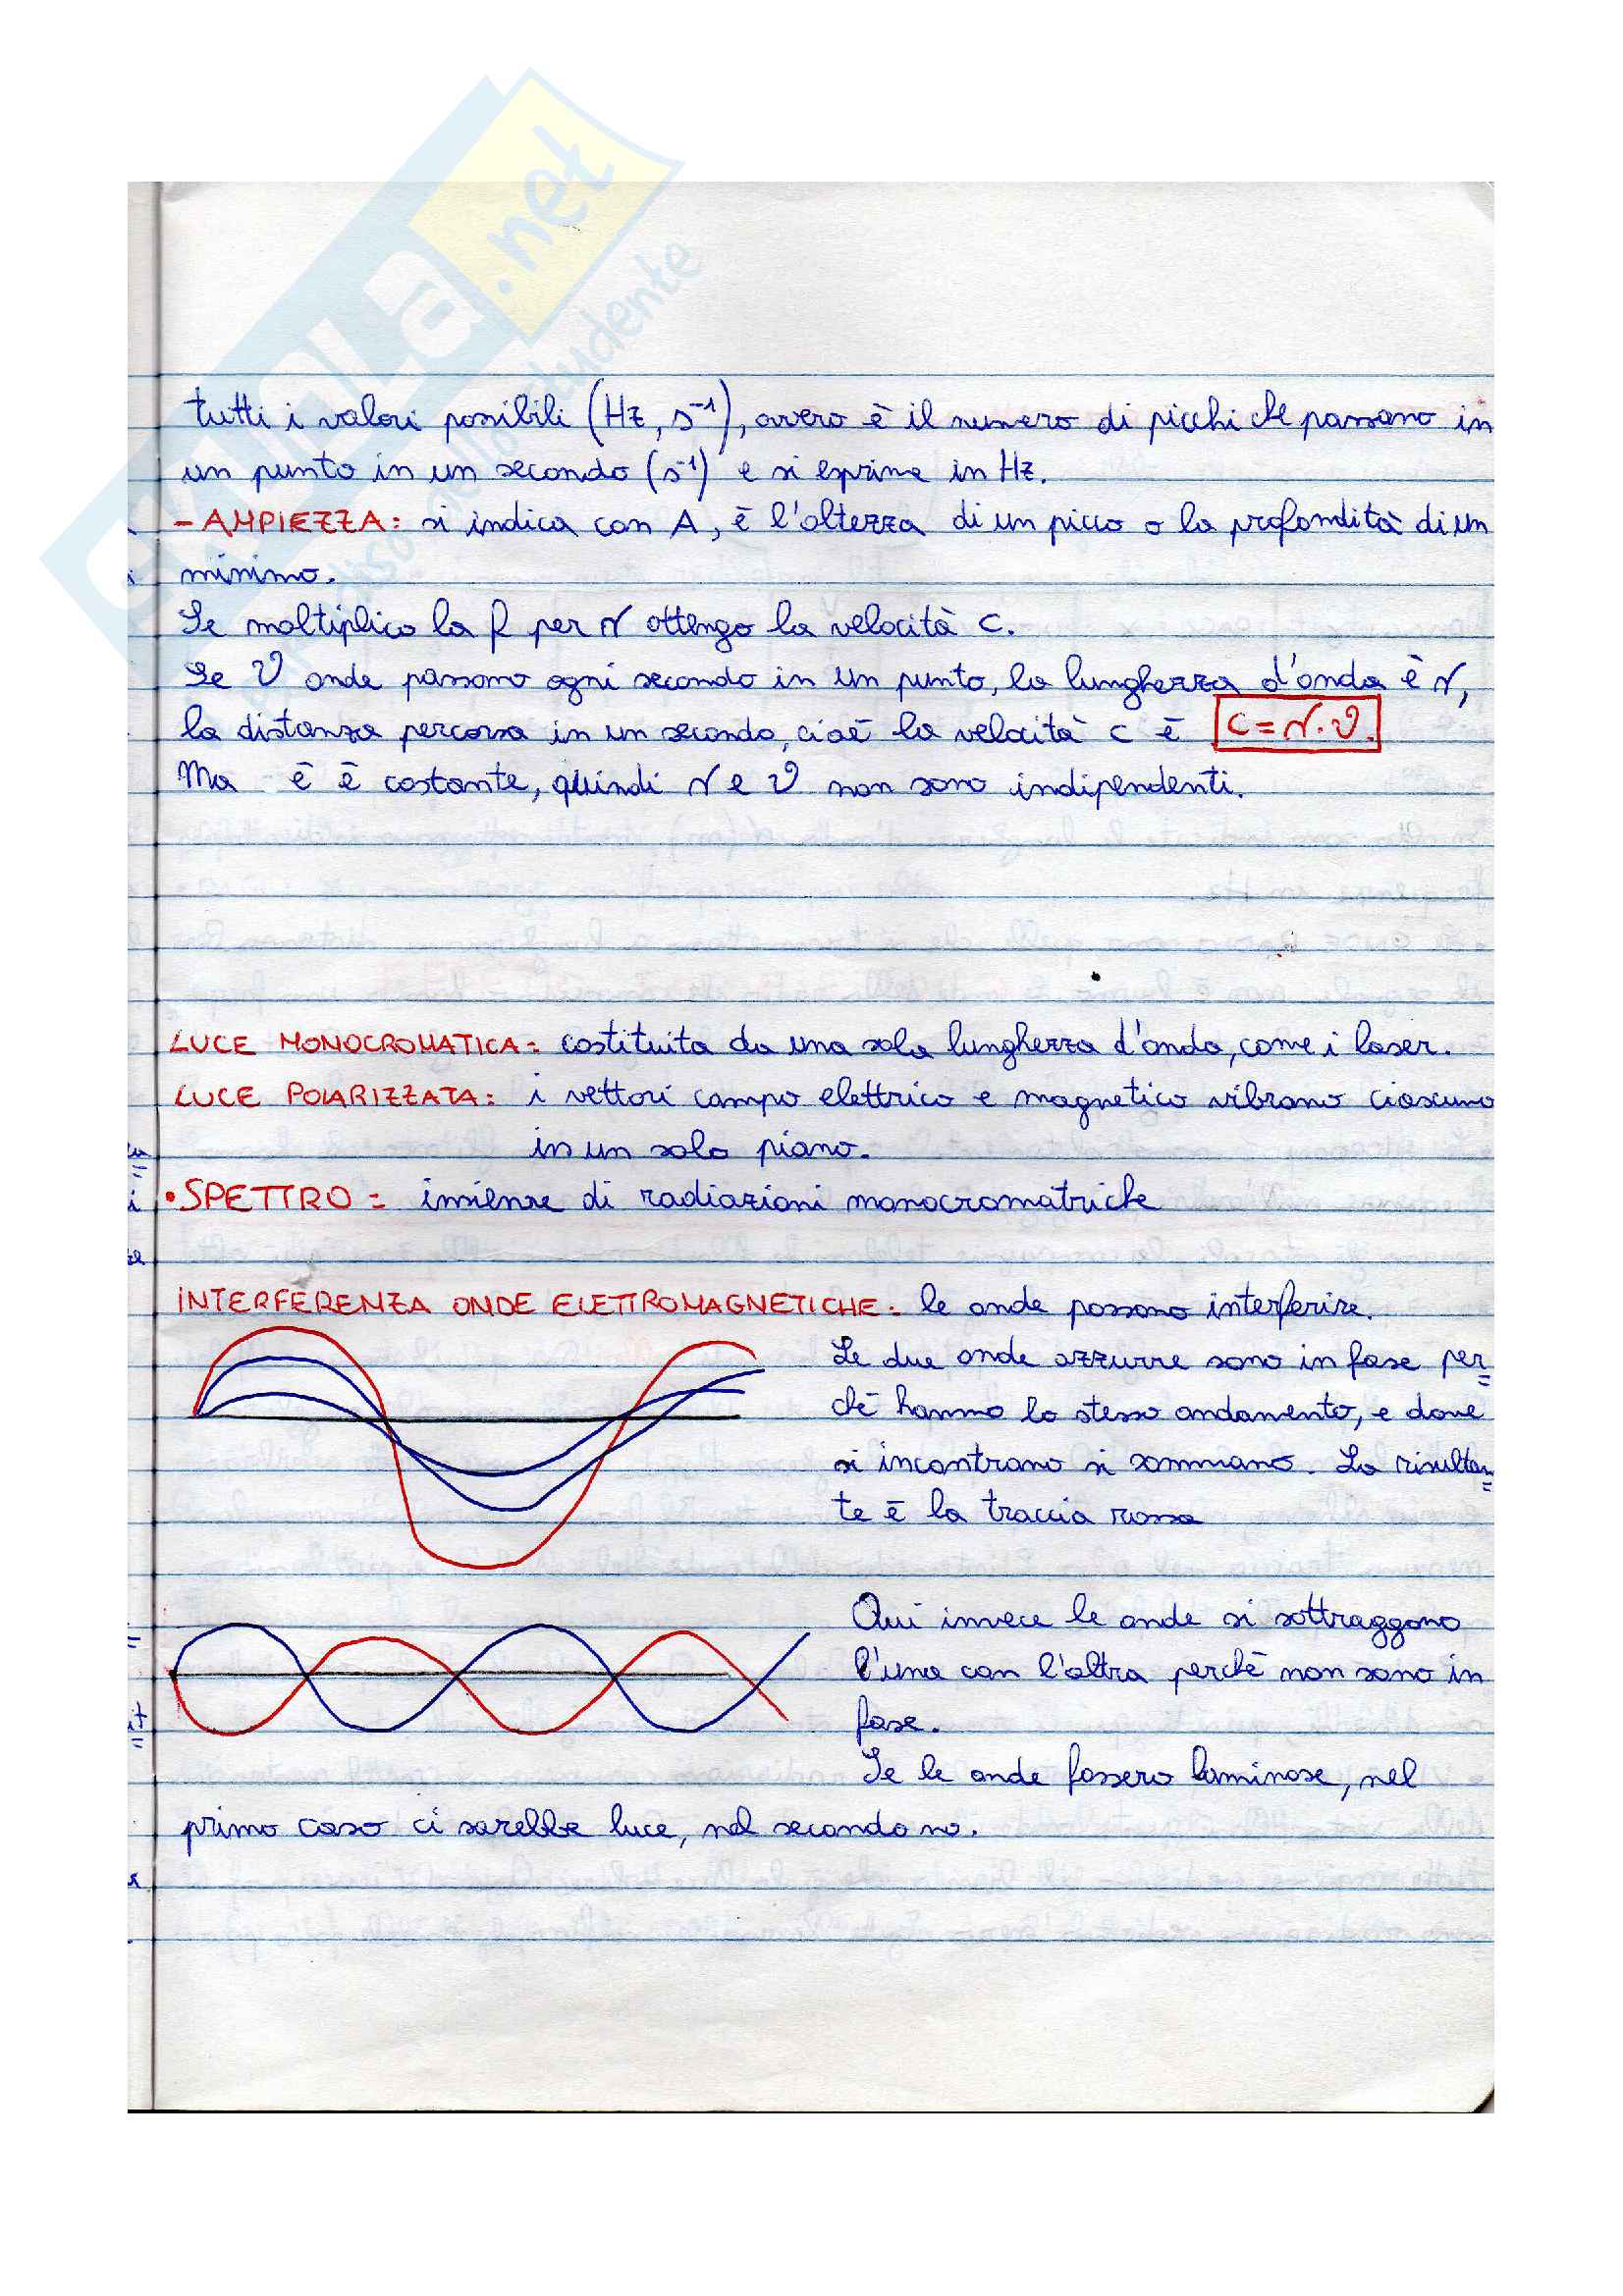 tutti i valori possibili (Hz, s⁻¹), ovvero è il numero di picchi che passano in
un punto in un secondo (s⁻¹) e si esprime in Hz.
- AMPIEZZA: si indica con A, è l'altezza di un picco o la profondità di un
minimo.
Se moltiplico la f per λ ottengo la velocità c.
Se ν onde passano ogni secondo in un punto, la lunghezza d'onda è λ,
la distanza percorsa in un secondo, cioè la velocità c è C = λ·ν.
Ma è è costante, quindi λ e ν non sono indipendenti.
LUCE MONOCROMATICA: costituita da una sola lunghezza d'onda, come i laser.
LUCE POLARIZZATA: i vettori campo elettrico e magnetico vibrano ciascuno
in un solo piano.
• SPETTRO = insieme di radiazioni monocromatriche
INTERFERENZA ONDE ELETTROMAGNETICHE: le onde possono interferire.
Le due onde azzurre sono in fase per=
chè hanno lo stesso andamento, e dove
si incontrano si sommano. La risultan=
te è la traccia rossa
Qui invece le onde si sottraggono
l'una con l'altra perchè non sono in
fase.
Se le onde fossero luminose, nel
primo caso ci sarebbe luce, nel secondo no.
.net